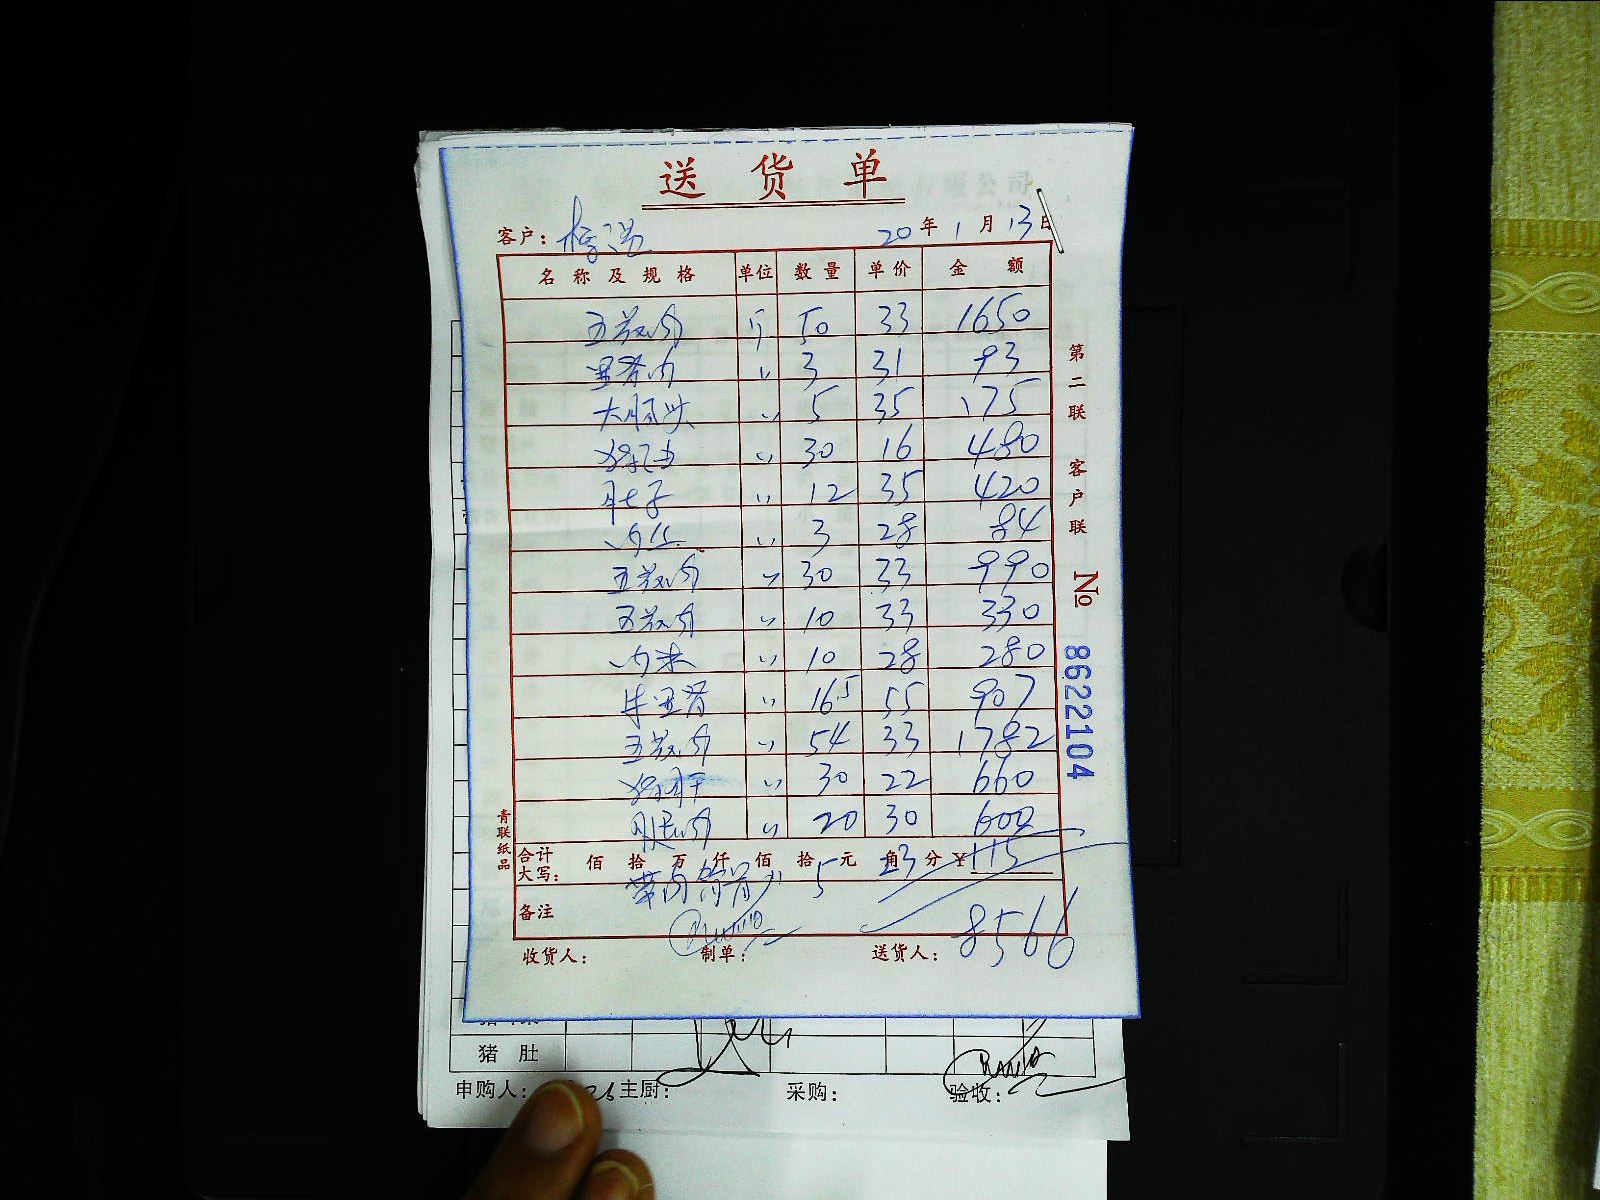 送货单
客户： 20年1月13日
名称及规格 单位 数量 单价 金额
五花肉 斤 50 33 1650
里脊肉 〃 3 31 93
大肠头 〃 5 35 175
〃 30 16 480
肚子 〃 12 35 420
肉丝 〃 3 28 84
五花肉 〃 30 33 990
五花肉 〃 10 33 330
肉末 〃 10 28 280
牛里脊 〃 16.5 55 907
五花肉 〃 54 33 1782
猪肝 〃 30 22 660
腿肉 〃 20 30 600
合计大写： 佰 拾 万 仟 佰 拾 元 角 分 ¥
带肉 5 23 115
备注
8566
收货人： 制单： 送货人：
第二联 客户联
№ 8622104
青联纸品
猪肚
申购人： 主厨： 采购： 验收：